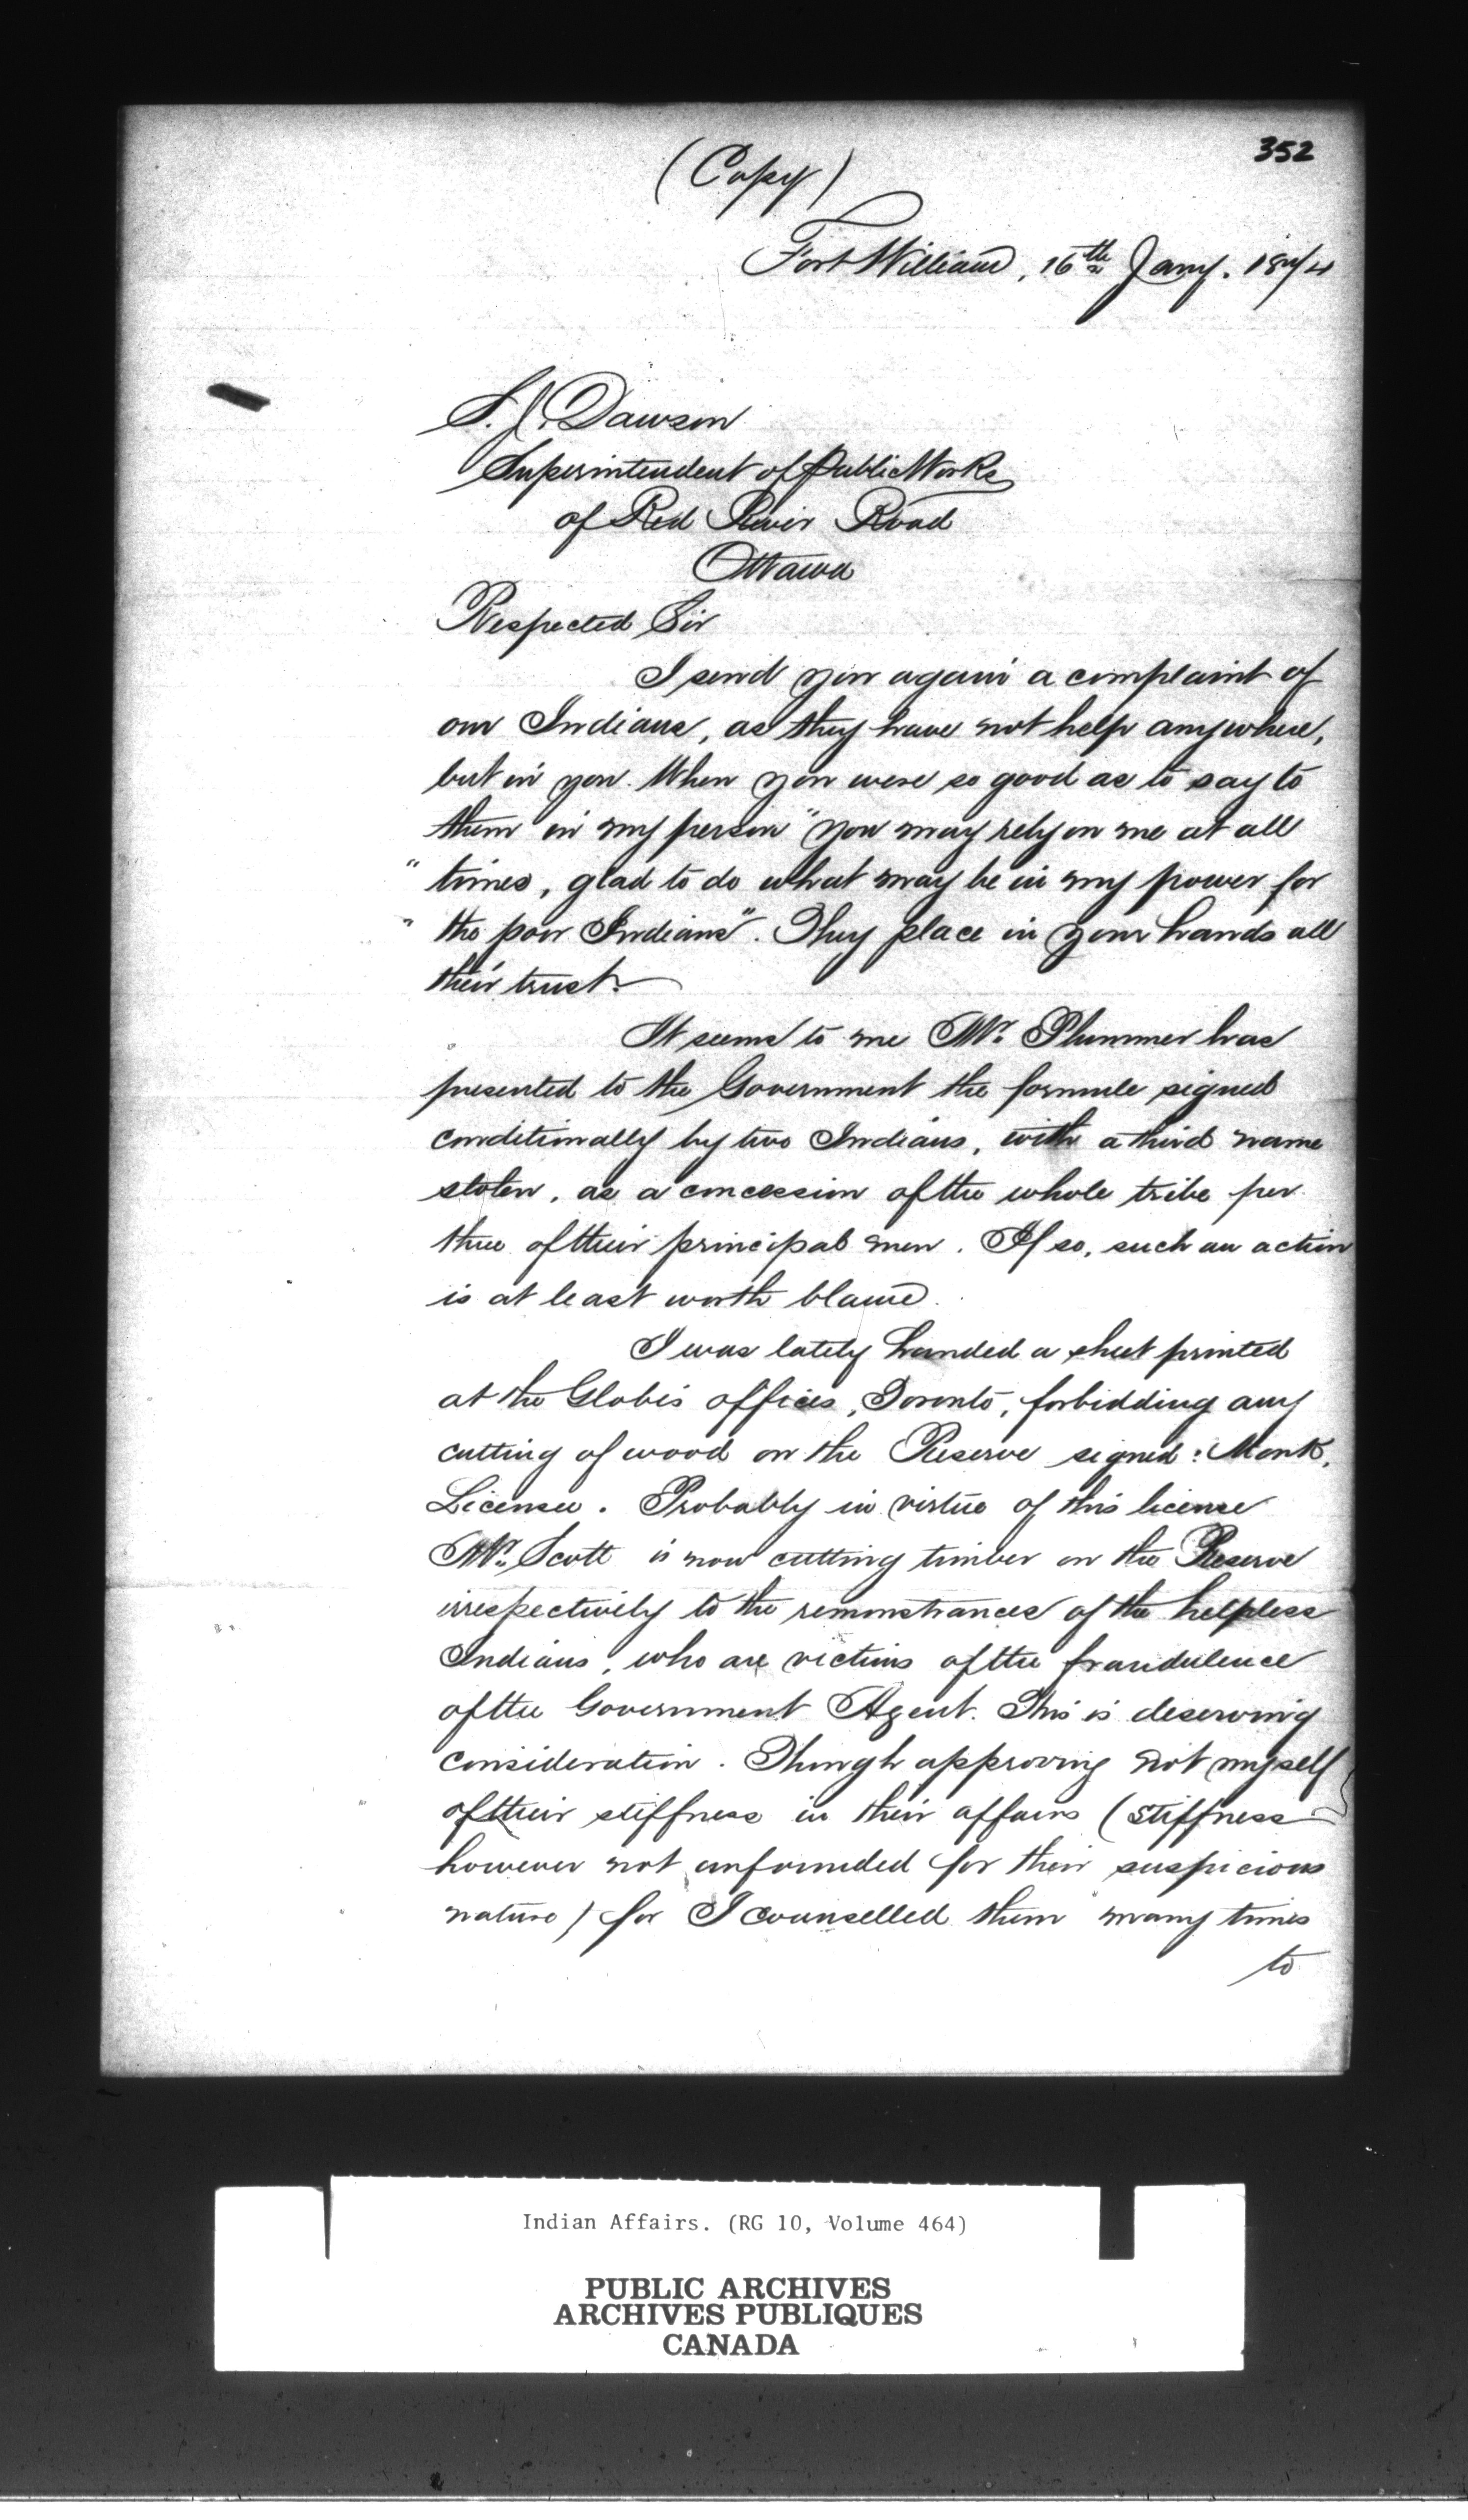 352
(Copy)
Fort William, 16th Jany. 1874
S. J. Dawson
Superintendent of Public Works
of Red River Road
Ottawa
Respected Sir
I send you again a complaint of
our Indians, as they have not help anywhere,
but in you. When you were so good as to say to
them in my person "you may rely on me at all
" times, glad to do what may be in my power for
" the poor Indians". They place in your hands all
their trust.
It seems to me Mr. Plummer has
presented to the Government the formule signed
conditionally by two Indians, with a third name
stolen, as a concession of the whole tribe per
three of their principal men. If so, such an action
is at least worth blame.
I was lately handed a sheet printed
at the Globe's offices, Toronto, forbidding any
cutting of wood on the Reserve signed: Monk,
Licensee. Probably in virtue of this license
Mr. Scott is now cutting timber on the Reserve
irrespectively to the remonstrances of the helpless
Indians, who are victims of the fraudulence
of the Government Agent. This is deserving
consideration. Though approving not myself
of their stiffness in their affairs (stiffness
however not unfounded for their suspicious
nature) for I counselled them many times
to
Indian Affairs. (RG 10, Volume 464)
PUBLIC ARCHIVES
ARCHIVES PUBLIQUES
CANADA